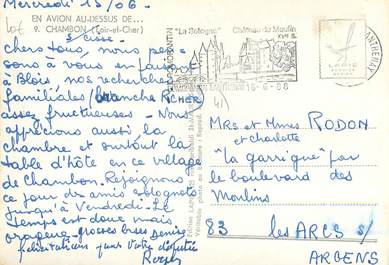 Mercredi 15/06-
EN AVION AU-DESSUS DE...
9. CHAMBON (Loir-et-Cher)
s/cisse
chers tous, nous pen-
sons à vous en faisant
à Blois, nos recherches
familiales (branche ROCHER)
assez fructueuses - Nous
apprécions aussi la
chambre et surtout la
table d'hôte en ce village
de Chambon. Rejoignons
ce jour des amis solognots
jusqu'à Vendredi - Le
temps est doux mais
orageux - grosses bises Denise
félicitations pour votre
Roger
"La Sologne"
Château du Moulin
XVe S.
ROMORANTIN
LAPIE
MRS et Mmes RODON
et Charlotte
"la garrigue" par
le boulevard des
Moulins
83 les ARCS s/
ARGENS